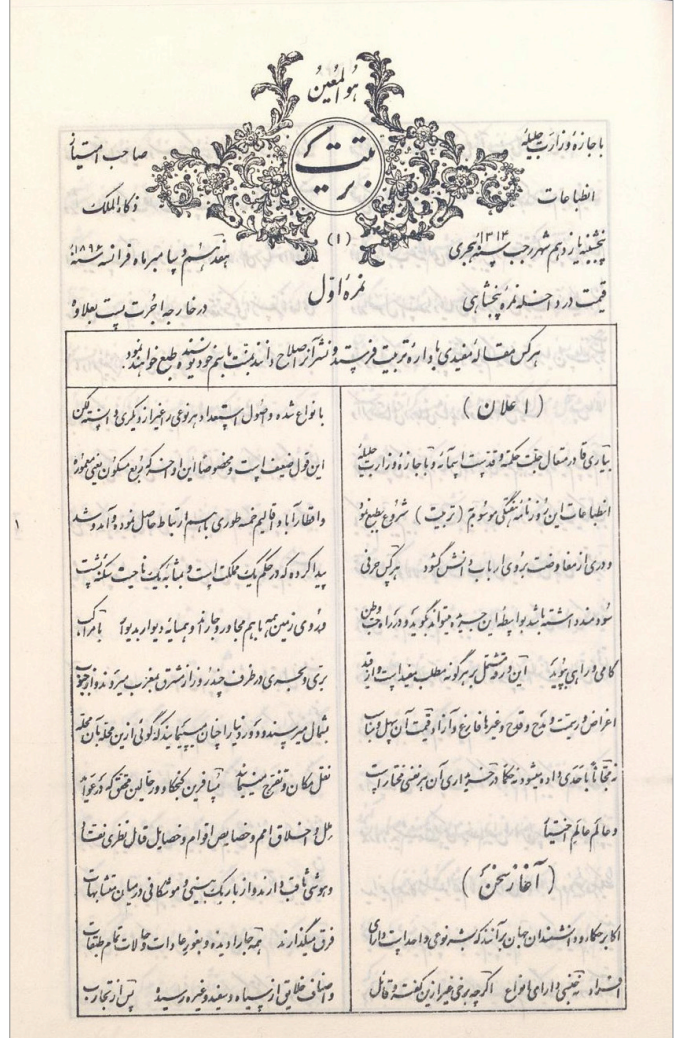 هو المعین
تربیت
(۱)
نمرهٔ اول
باجازهٔ وزارت جلیلهٔ
انطباعات
پنجشنبه یازدهم شهر رجب سنهٔ ۱۳۱۴ هجری
قیمت در داخله نمرهٔ پنجشاهی
صاحب امتیاز
ذکاء الملک
هفدهم دسامبر ماه فرانسه سنهٔ ۱۸۹۶
در خارجه اجرت پست بعلاوه
هر کس مقالهٔ مفیدی باداره تربیت فرستد و نشر آنرا صلاح دانند باسم خود نویسنده طبع خواهد نمود
(اعلان)
بیاری قادر متعال جلت حکمته و قدست اسمائه و باجازه وزارت جلیلهٔ
انطباعات این روزنامهٔ هفتگی موسوم به (تربیت) شروع بطبع نمود
و دری از مفاوضت بروی ارباب دانش گشود هر کس حرفی
سودمند داشته باشد بواسطهٔ این جریده میتواند گوید و در راه حب وطن
گامی و راهی پوید این ورقه مشتمل بر هر گونه مطلب مفید است و از قید
اغراض و ریبت و مدح و قدح و غیرها فارغ و آزاد قیمت آن سهل و مناسب
نه مجاناً باحدی داده میشود نه حکماً در خریداری آن هر نفسی مختار است
و عالم عالم اختیار
(آغاز سخن)
اکابر حکما و دانشمندان جهان بر آنند که بشر نوعی واحد است دارای
افراد نه جنسی دارای انواع اگر چه برخی غیر ازین گفته و قائل
بانواع شده و اصول استعداد هر نوعی را غیر از دیگری دانسته لکن
این قول ضعیف است و مخصوصاً این اواخر که ربع مسکون یعنی معمورهٔ
و اقطار آباد و اقالیم خمسه طوری با هم ارتباط حاصل نموده و آمد و شد
پیدا کرده که در حکم یک مملکت است و بمثابه یک ناحیت سکنه پشت
و روی زمین همه با هم مجاور و جارند و همسایه دیوار بدیوار با مراکب
بری و بحری در ظرف چند روز از مشرق بمغرب میروند و از جنوب
بشمال میرسند و دور دنیا را چنان میپیمایند که گوئی ازین محله بآن محله
نقل مکان و تفرج مینمایند مسافرین کنجکاو و رجال محقق که در عوائد
ملل و اخلاق امم و خصایص اقوام و خصایل قبائل نظری نقاد
و هوشی ثاقب دارند و از باریک بینی و موشکافی در میان متشابهات
فرق میگذارند همه جا را دیده و بغور عادات و حالات تمام طبقات
و اصناف خلایق از سیاه و سفید و غیره رسیده پس از تجارب
۱